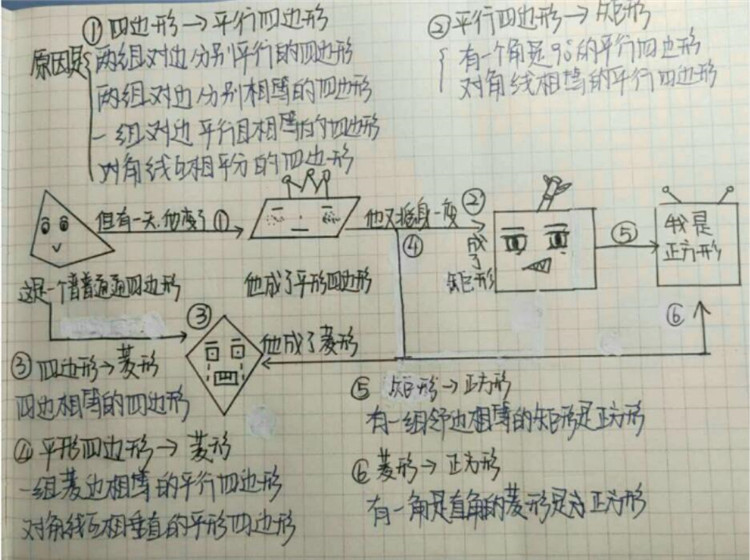 ① 四边形→平行四边形
原因是
两组对边分别平行的四边形
两组对边分别相等的四边形
一组对边平行且相等的四边形
对角线互相平分的四边形
② 平行四边形→矩形
有一个角是90°的平行四边形
对角线相等的平行四边形
但有一天,他变了 ①
他又摇身一变 ②
④
成了矩形
⑤
我是
正方形
这是一个普普通通四边形
他成了平形四边形
③
他成了菱形
⑥
③ 四边形→菱形
四边相等的四边形
④ 平形四边形→菱形
一组菱边相等的平行四边形
对角线互相垂直的平形四边形
⑤ 矩形→正方形
有一组邻边相等的矩形是正方形
⑥ 菱形→正方形
有一角是直角的菱形是为正方形